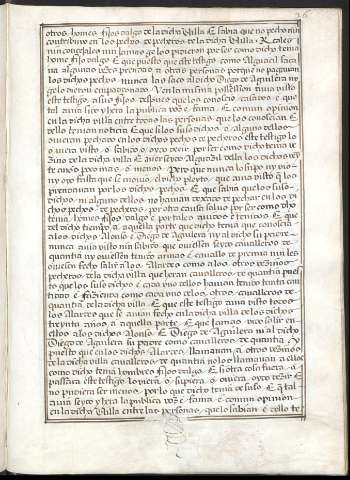 otros. homes. fijos dalgo de la dicha Villa. E sabia que no pecho nin
contribuio en los pechos. de pecheros de la dicha Villa. Reales
nin conçejales nin jamas ge los pidieron por ser como dicho tenia
home fijo dalgo. E que puesto que este testigo. como Alguacil saca
ua algunas vezes prendas a otras personas. porque no pagauan
los dichos pechos. nunca las saco al dicho Diego de Aguilera ny
ge lo dieron empadronado. Y en la misma possession auia visto
este testigo. a sus fijos. despues que los conoscia casados. e que
tal auia seydo y hera la publica voz e fama. E comun opinion
en la dicha villa entre todas las personas. que los conoscian E
dello tenian noticia. E que si los suso dichos. o alguno dellos
ouieran pechado en los dichos pechos de pecheros este testigo lo
o uiera visto. o sabido. o oydo dezir por ser como dicho tenia ve
zino de la dicha villa. E auer seydo Alguazil della los dichos vey
te años. poco mas. o menos. Pero que nunca lo supo ny vio
ny oyo fasta que se mouio el dicho pleyto. que auia visto que los
prendauan por los dichos pechos. E que sabia que los suso
dichos. ni alguno dellos no hauian dexado de pechar en los di
chos pechos. de pecheros. por otra causa saluo por ser como dicho
tenia homes fijos dalgo. e por tales. auidos e tenidos. E que
del dicho tiempo a aquella parte que dicho tenia que conoscia
a los dichos Alonso e Diego de Aguilera ny al dicho su padre
nunca auia visto nin sabido que ouiessen seydo caualleros de
quantia ny ouiessen tenido armas e cauallo de premia nin les
ouiessen fecho salir a los Alardes como a los otros vezinos
pecheros de la dicha villa que heran caualleros de quantia pues
to que los suso dichos e cada vno dellos hauian tenido tanta can
tidad e fazienda como cada vno de los otros. caualleros de
quantia de la dicha villa. E que este testigo auia visto todos
los Alardes que se auian fecho en la dicha villa de los dichos
treynta años. a aquella parte. E que jamas vido salir en
ellos a los dichos Alonso. E Diego de Aguilera ni al dicho
Diego de Aguilera su padre como caualleros de quantia. Y
puesto que en los dichos Alardes. llamauan a otros vezinos
de la dicha villa caualleros de quantia no los llamauan a ellos
como dicho tenia hombres fijos dalgo. E si otra cosa fuera. o
passara este testigo lo viera. o supiera. o ouiera oydo dezir E
no pudiera ser menos. por lo que dicho tenia de suso. E q tal
auia seydo y hera la publica voz e fama e comun opinion
en la dicha Villa entre las personas. que lo sabian e dello te